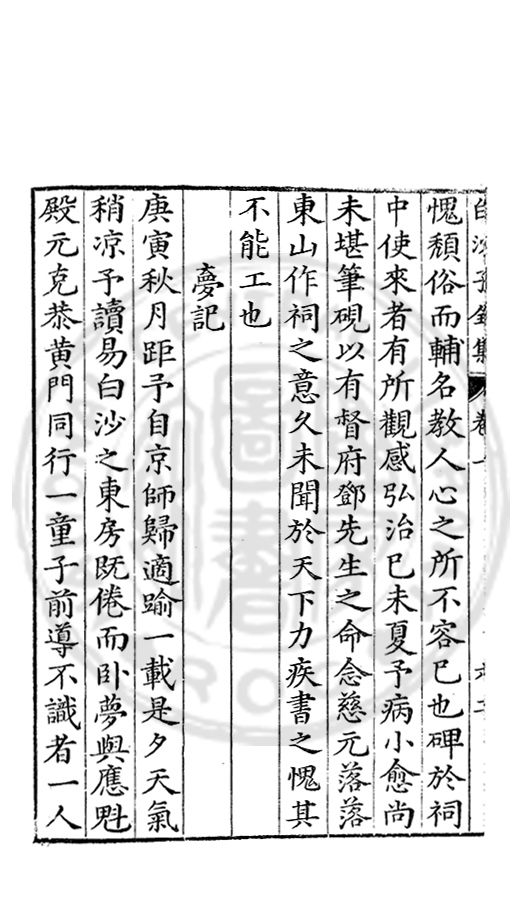 愧頹俗而輔名教人心之所不容已也碑於祠
中使來者有所觀感弘治已未夏予病小愈尚
未堪筆硯以有督府鄧先生之命念慈元落落
東山作祠之意久未聞於天下力疾書之愧其
不能工也
夢記
庚寅秋月距予自京師歸適踰一載是夕天氣
稍凉予讀易白沙之東房既倦而卧夢與應魁
殿元克恭黄門同行一童子前導不識者一人